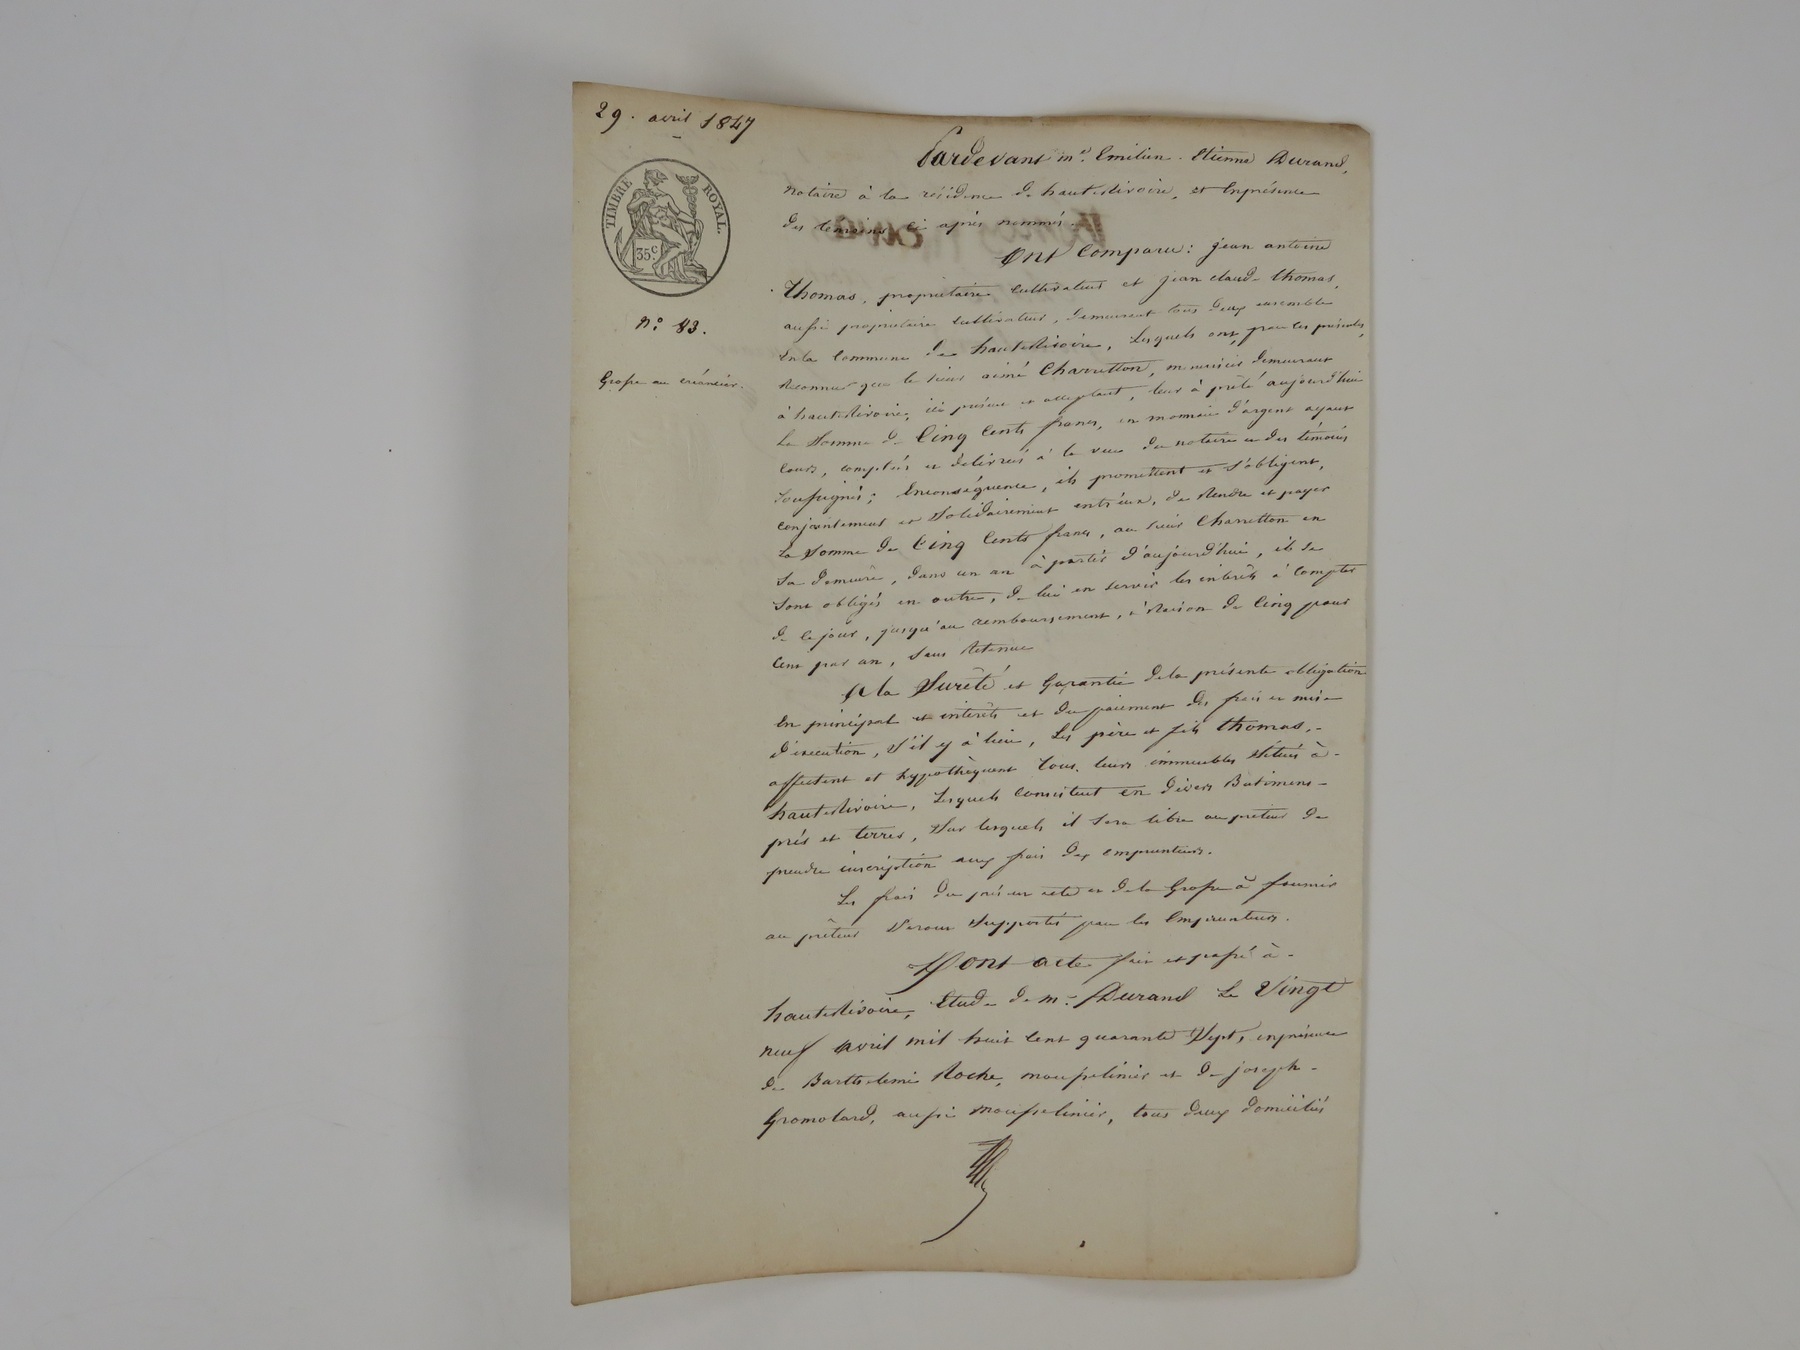 29. avril 1847
TIMBRE ROYAL.
35c.
n.° 83.
Grosse au créancier.
Pardevant m.e Emilien. Etienne Durand,
notaire à la résidence de hauterivoire, et Enprésence
des témoins ci après nommés.
Ont Comparu: jean antoine
thomas, propriétaire Cultivateur et jean claude thomas,
aussi propriétaire Cultivateur, demeurant tous deux ensemble
Enla Commune de hauterivoire, Lesquels ont, par les présentes,
Reconnu que le sieur aimé Charretton, menuisier demeurant
à hauterivoire, ici présent et acceptant, leur à prêté aujourd'hui
La Somme de Cinq Cents francs, en monnaie d'argent ayant
Cours, comptés et délivrés à la vue du notaire et des témoins
Soussignés; Enconséquence, ils promettent et s'obligent,
conjointement et Solidairement entr'eux, de Rendre et payer
La Somme de Cinq Cents francs, au sieur Charretton en
Sa demeure, dans un an à partir d'aujourd'hui, ils se
Sont obligés en outre, de lui en servir les intérêts à Compter
de Ce jour, jusqu'au remboursement, à Raison de Cinq pour
Cent par an, Sans Retenue
A la Sureté et Garantie dela présente obligation
En principal et intérêts et du paiement des frais et mise
d'execution, S'il y à lieu, Les père et fils thomas,
affectent et hypothèquent tous leurs immeubles Situés à-
hauterivoire, Lesquels Consistent en divers Batimens-
prés et terres, Sur lesquels il Sera libre au prêteur de
prendre inscription aux frais des emprunteurs.
Les frais du présent acte et dela Grosse à fournir
au prêteur Seront Supportés par les Emprunteurs.
Dont acte fait et passé à-
hauterivoire, Etude de m.e Durand Le Vingt
neuf avril mil huit Cent quarante Sept, enprésence
de Barthelemi Roche, mousselinier et de joseph-
Gromolard, aussi Mousselinier, tous deux domiciliés